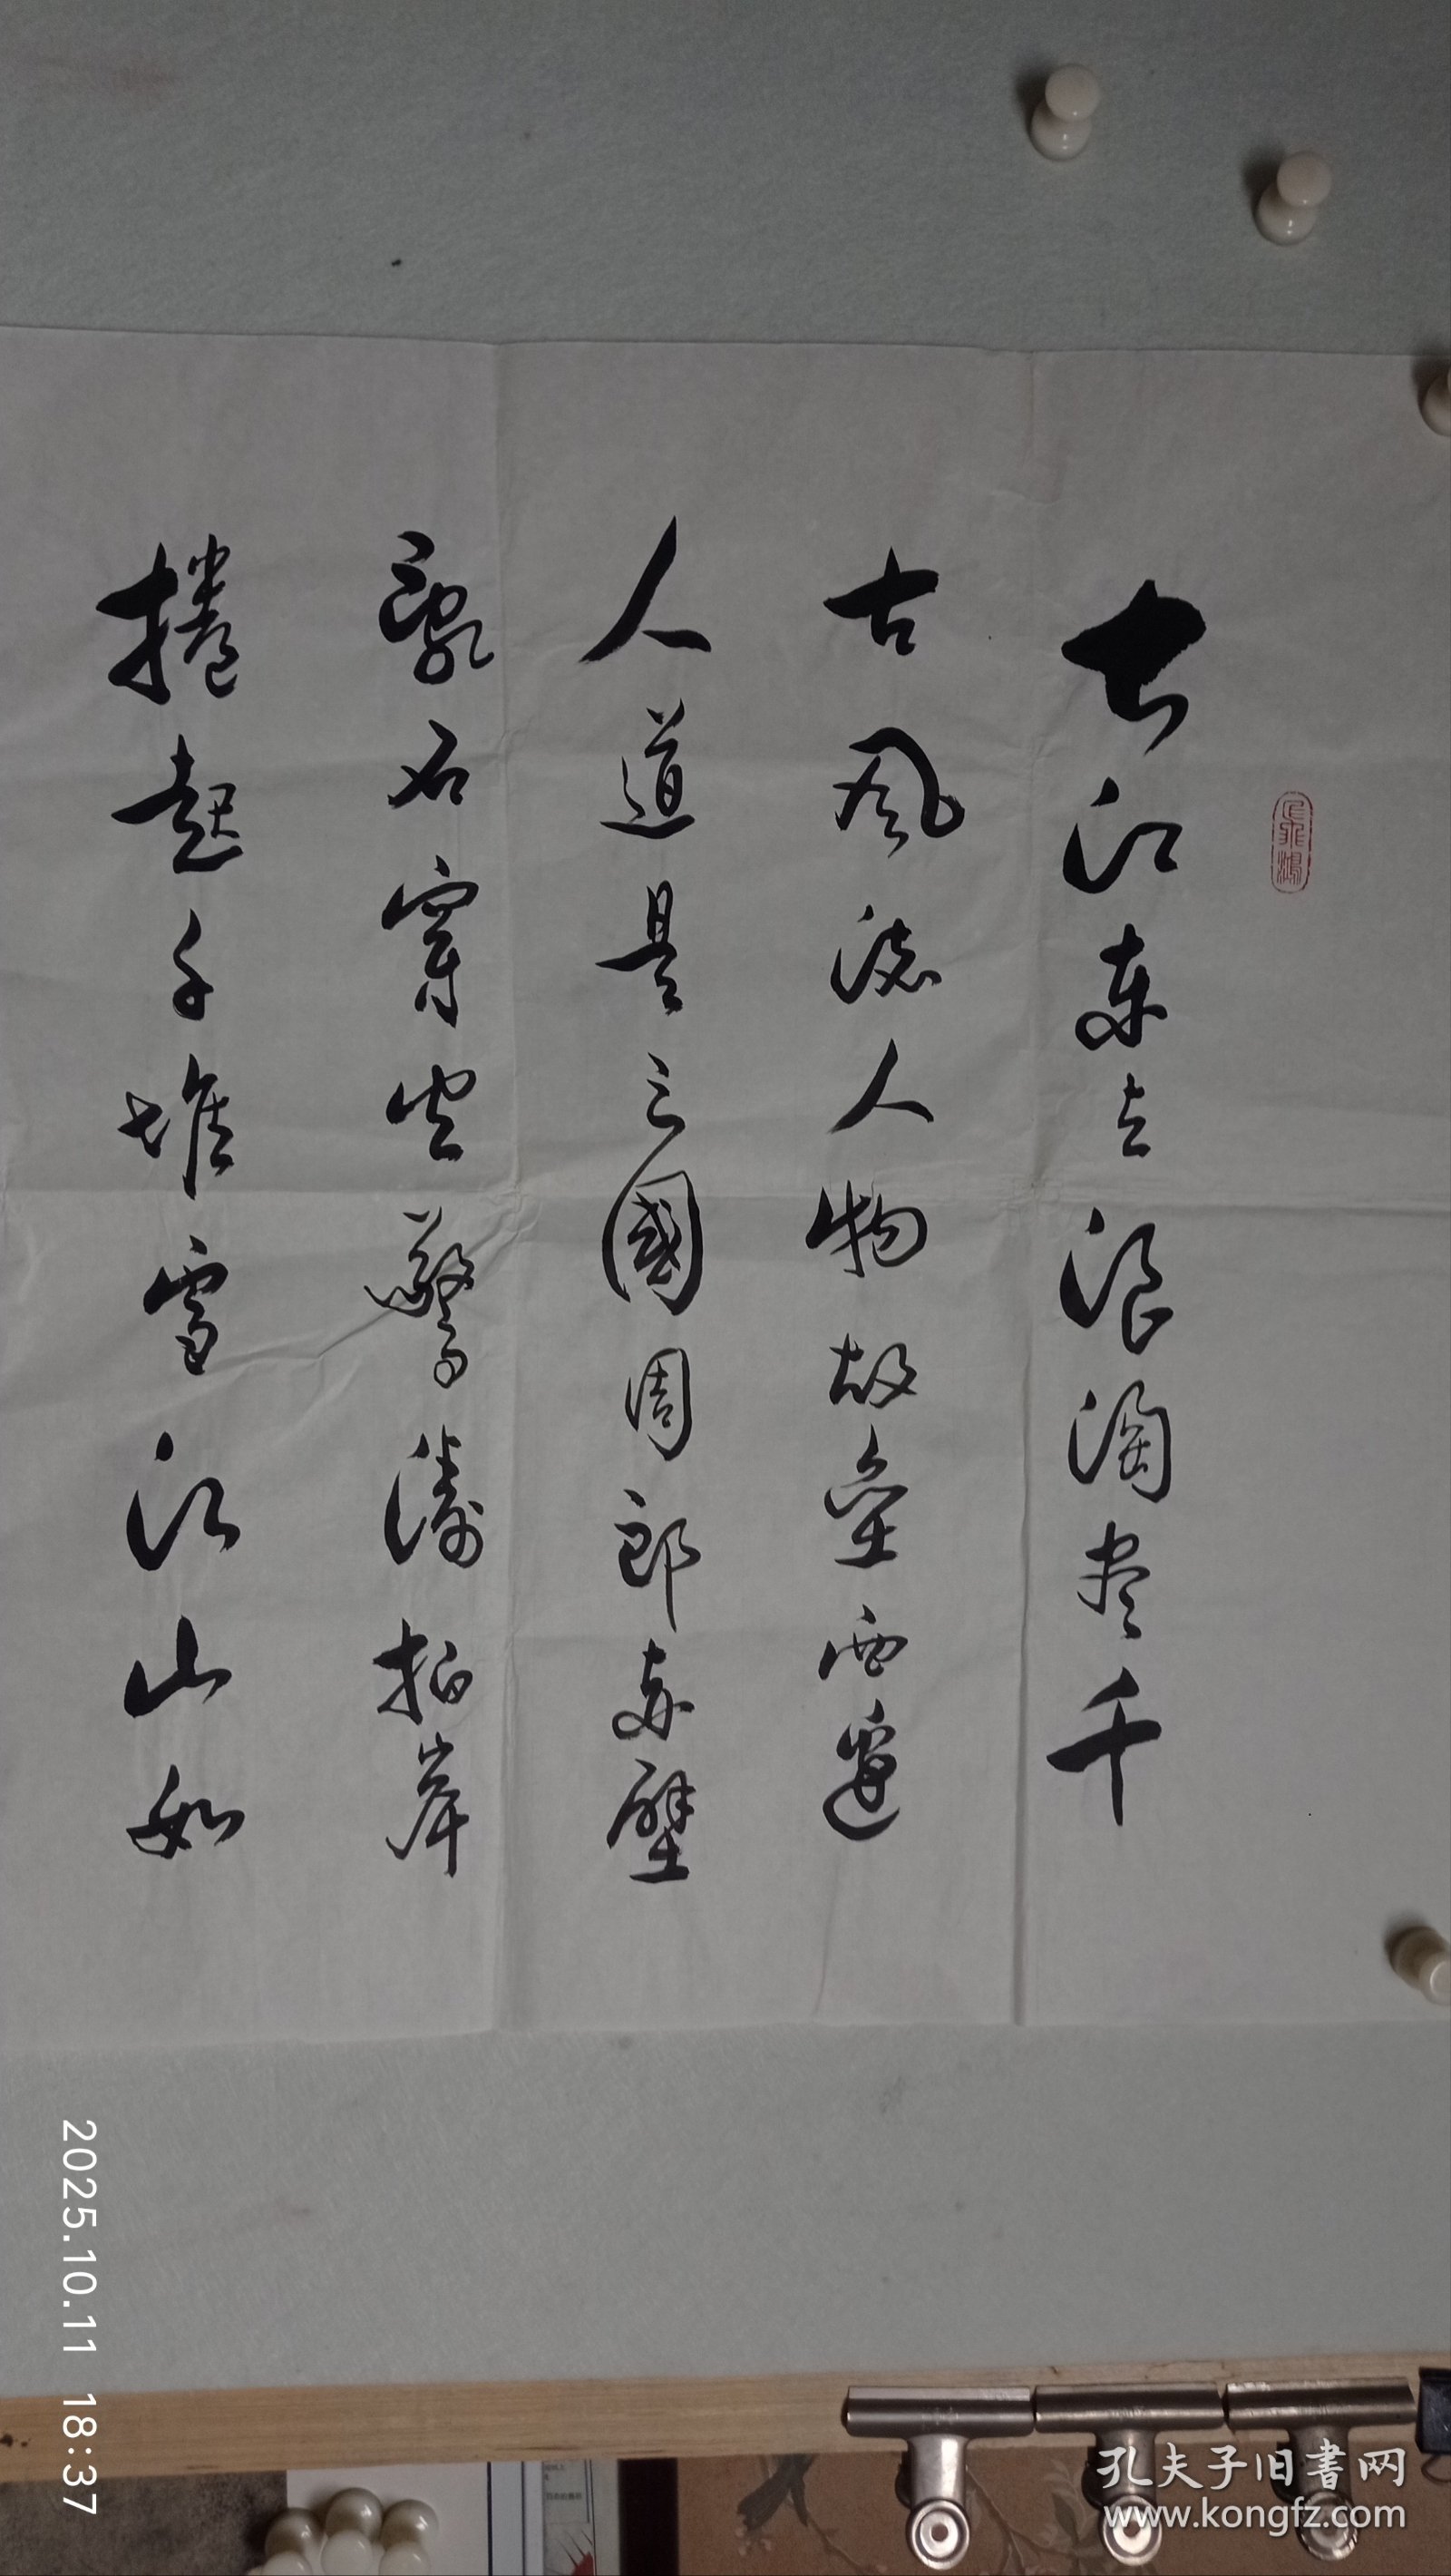 大江东去浪淘尽千
古风流人物故垒西邊
人道是三國周郎赤壁
亂石穿空驚濤拍岸
捲起千堆雪江山如
2025.10.11 18:37
孔夫子旧书网
www.kongfz.com